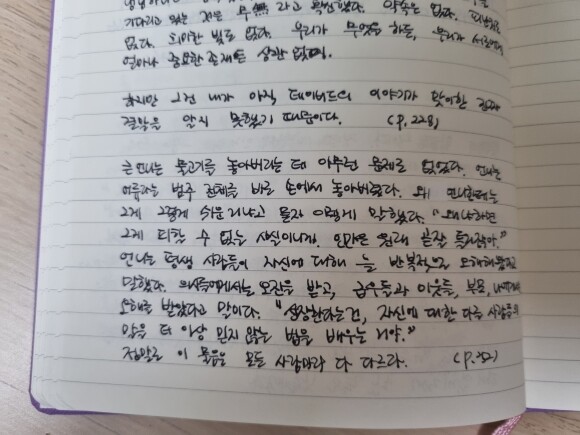 기다리고 있는 것은 무無 라고 확신했다. 약속은 없다.
없다. 희미한 빛도 없다. 우리가 무엇을 하든, 우리가 서로에게
얼마나 중요한 존재든 상관 없이.
하지만 그건 내가 아직 데이비드의 이야기가 맞이한 진짜
결말을 알지 못했기 때문이다. (p.228)
큰언니는 물고기를 놓아버리는 데 아무런 문제도 없었다. 언니는
어류라는 범주 전체를 바로 손에서 놓아버렸다. 왜 언니한테는
그게 그렇게 쉬운 거냐고 묻자 이렇게 말했다. "왜냐하면
그게 피할 수 없는 사실이니까. 인간은 원래 곧잘 틀리잖아."
언니는 평생 사람들이 자신에 대해 늘 반복적으로 오해해왔다고
말했다. 의사들에게서는 오진을 받고, 급우들과 이웃들, 부모, 나에게서는
오해를 받았다고 말이다. "성장한다는 건, 자신에 대한 다른 사람들의
말을 더 이상 믿지 않는 법을 배우는 거야."
정말로 이 물음은 모든 사람마다 다 다르다. (p.252)